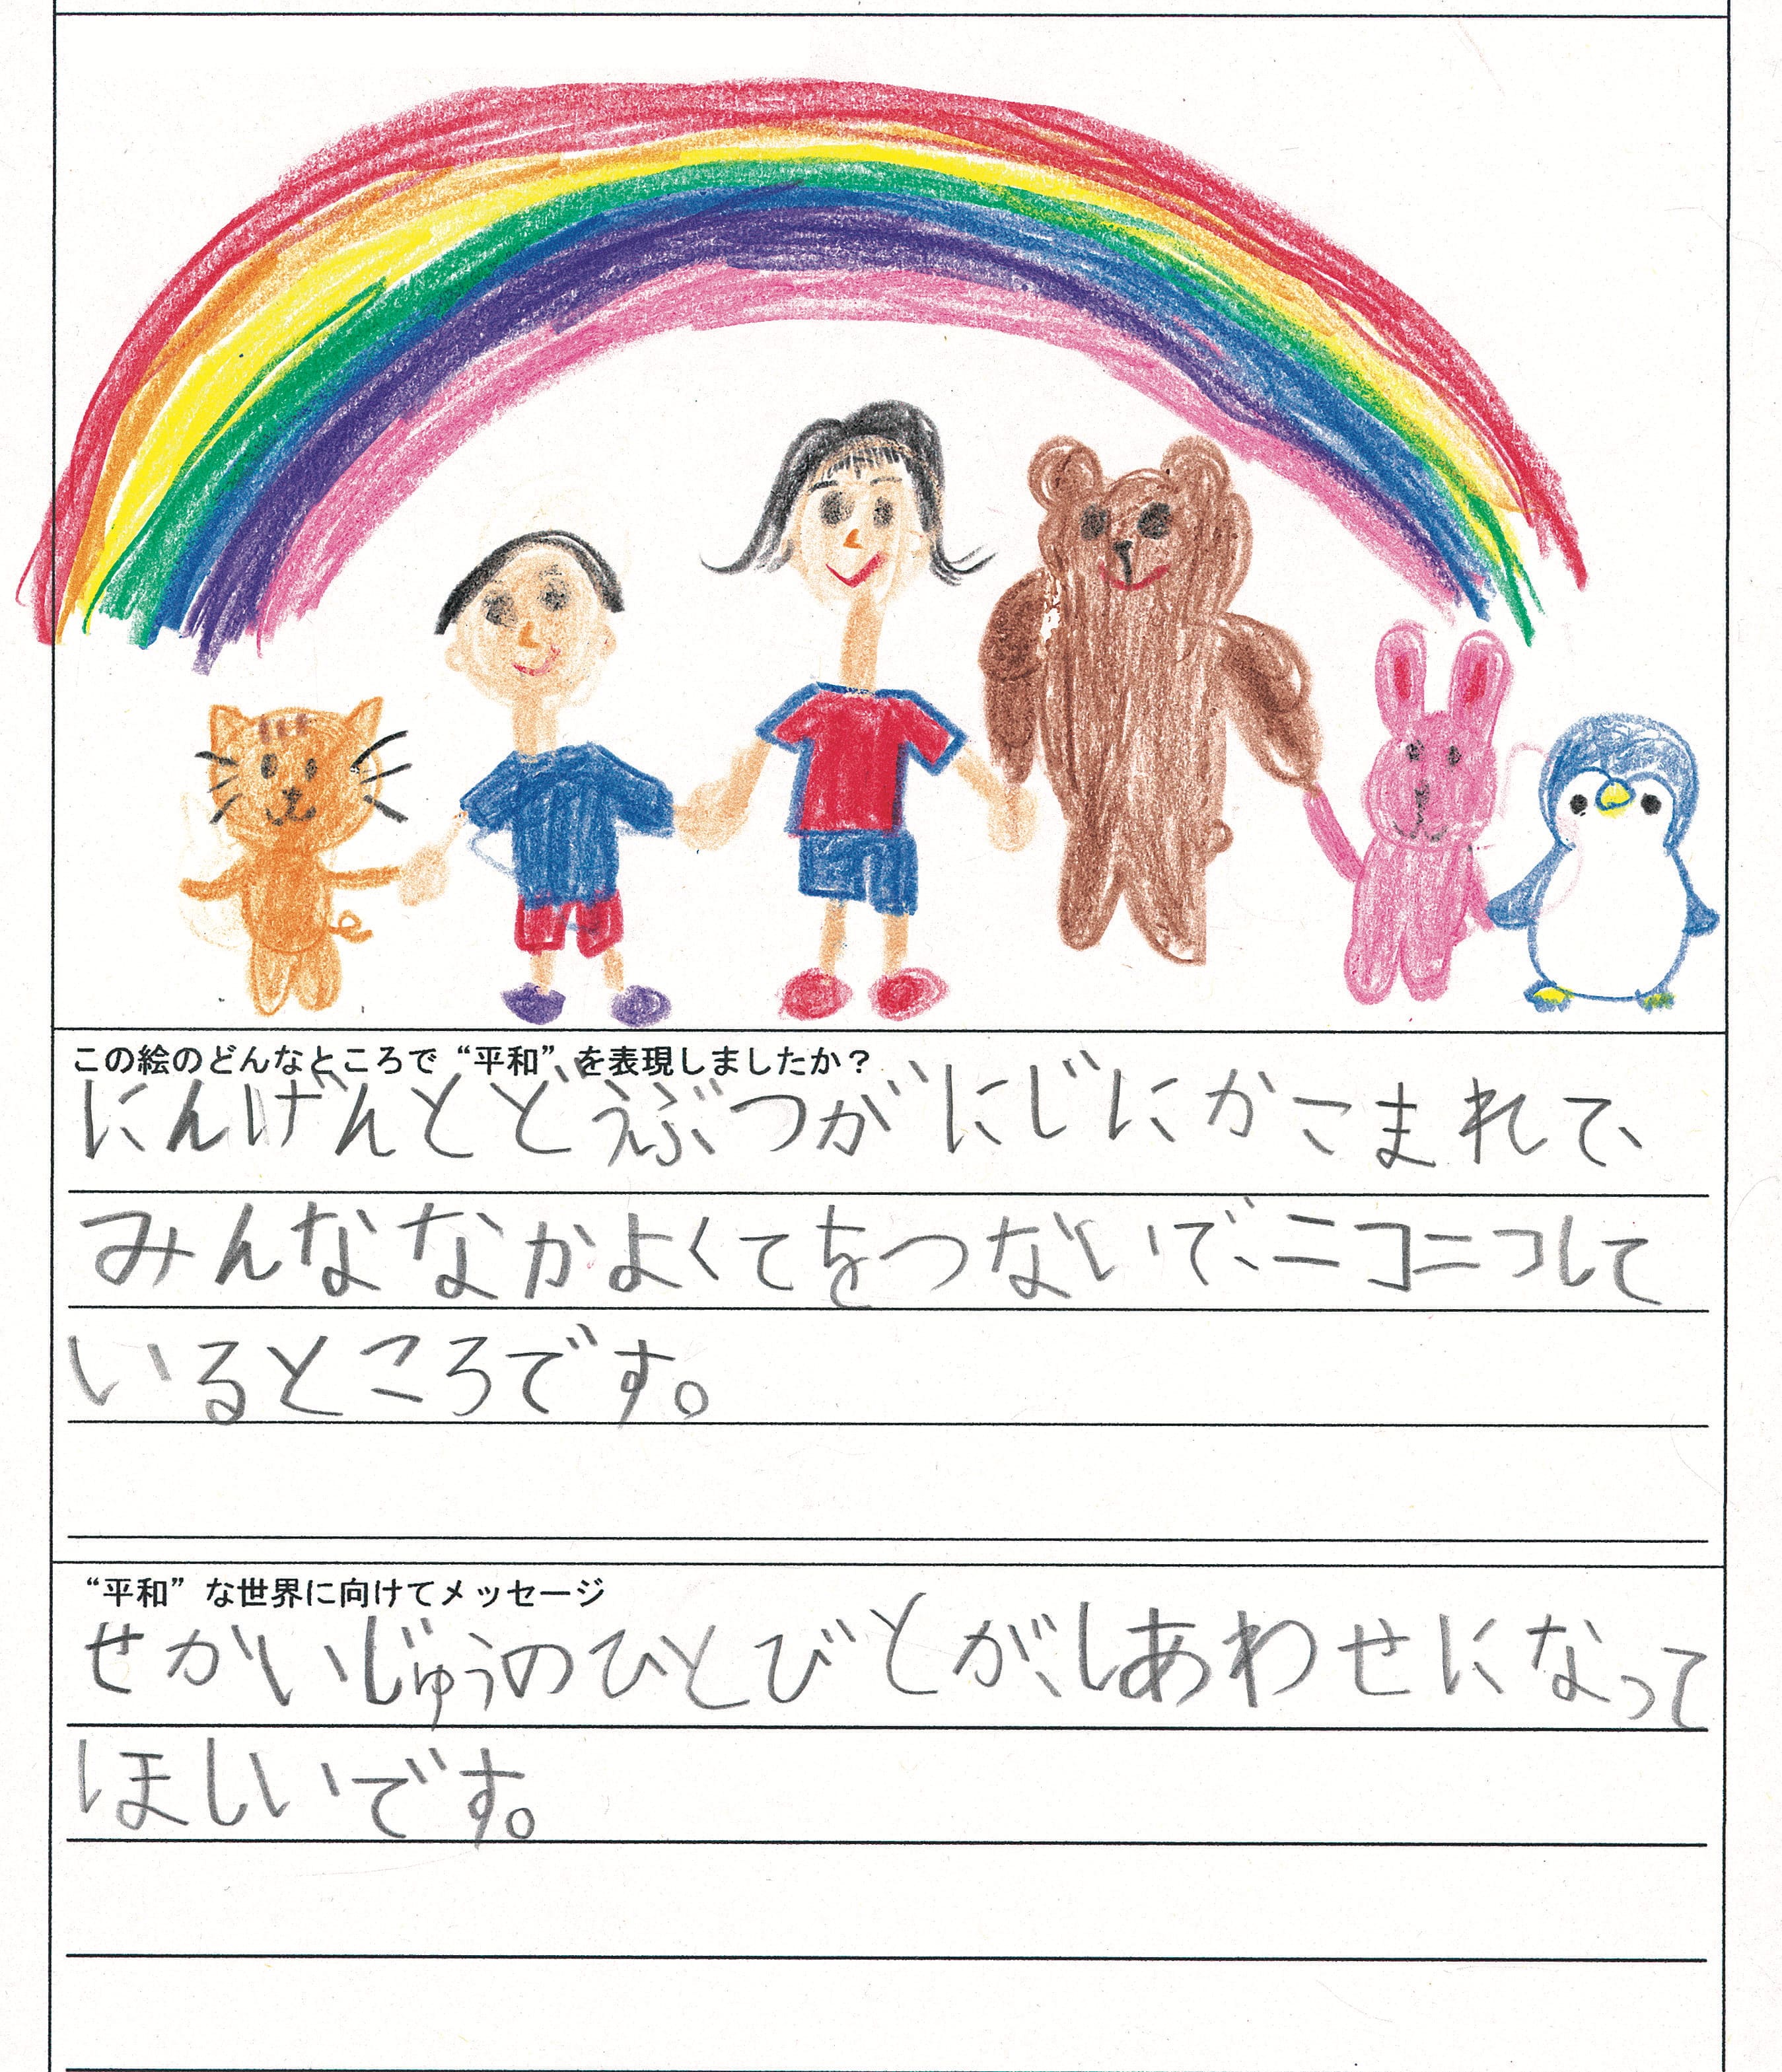 この絵のどんなところで“平和”を表現しましたか？
にんげんとどうぶつがにじにかこまれて、
みんななかよくてをつないで、ニコニコして
いるところです。
“平和”な世界に向けてメッセージ
せかいじゅうのひとびとが、しあわせになって
ほしいです。